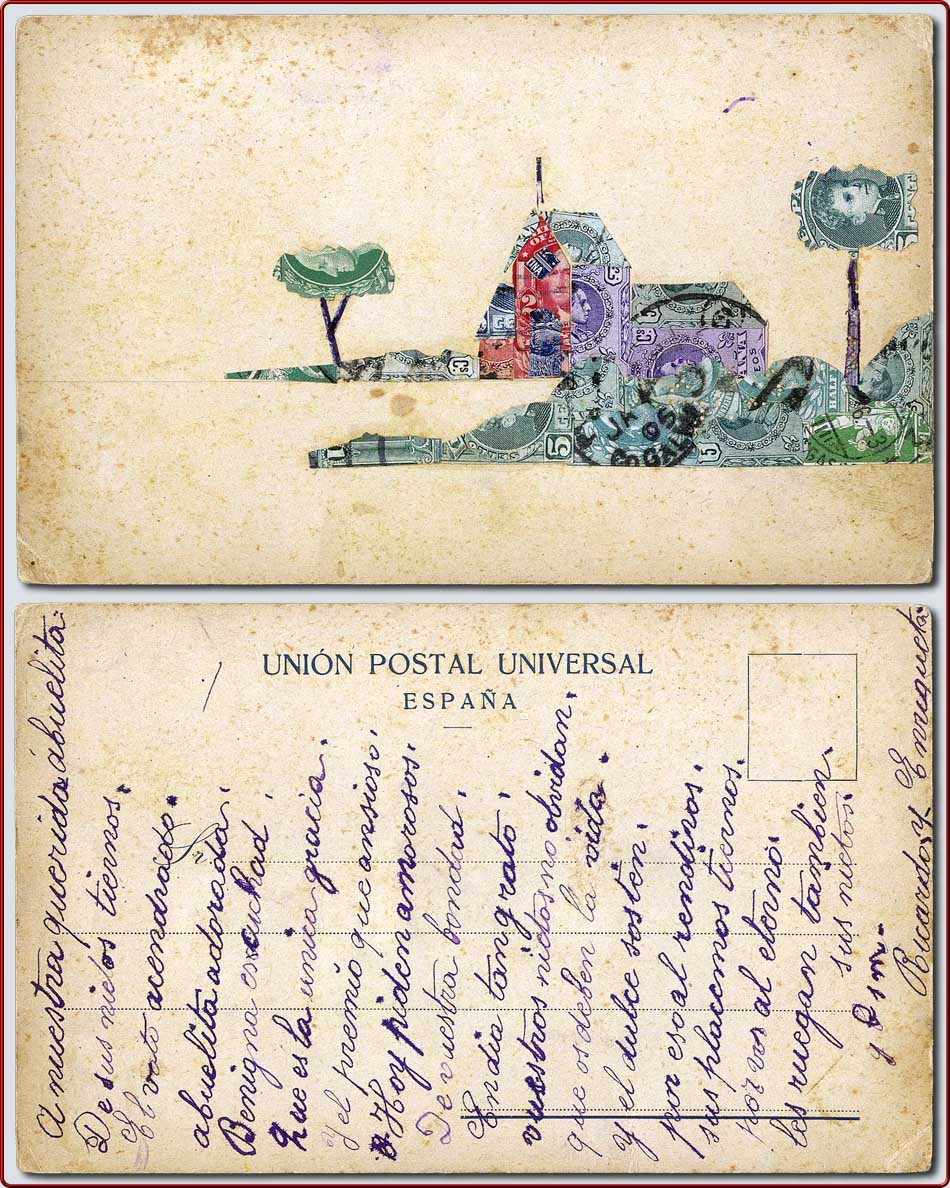 UNIÓN POSTAL UNIVERSAL
ESPAÑA
A nuestra querida abuelita
De sus nietos tiernos.
El voto acendrado
abuelita adorada
Benigna escuchad
Que es la unica gracia.
y el premio que ansioso.
Hoy piden amorosos.
De vuestra bondad
En dia tan grato
vuestros nietos no olvidan.
que os deben la vida.
y el dulce sosten.
por eso al rendiros.
sus placemes tiernos.
por vos al eterno.
les ruegan tambien.
sus nietos
Ricardo y Enriqueta